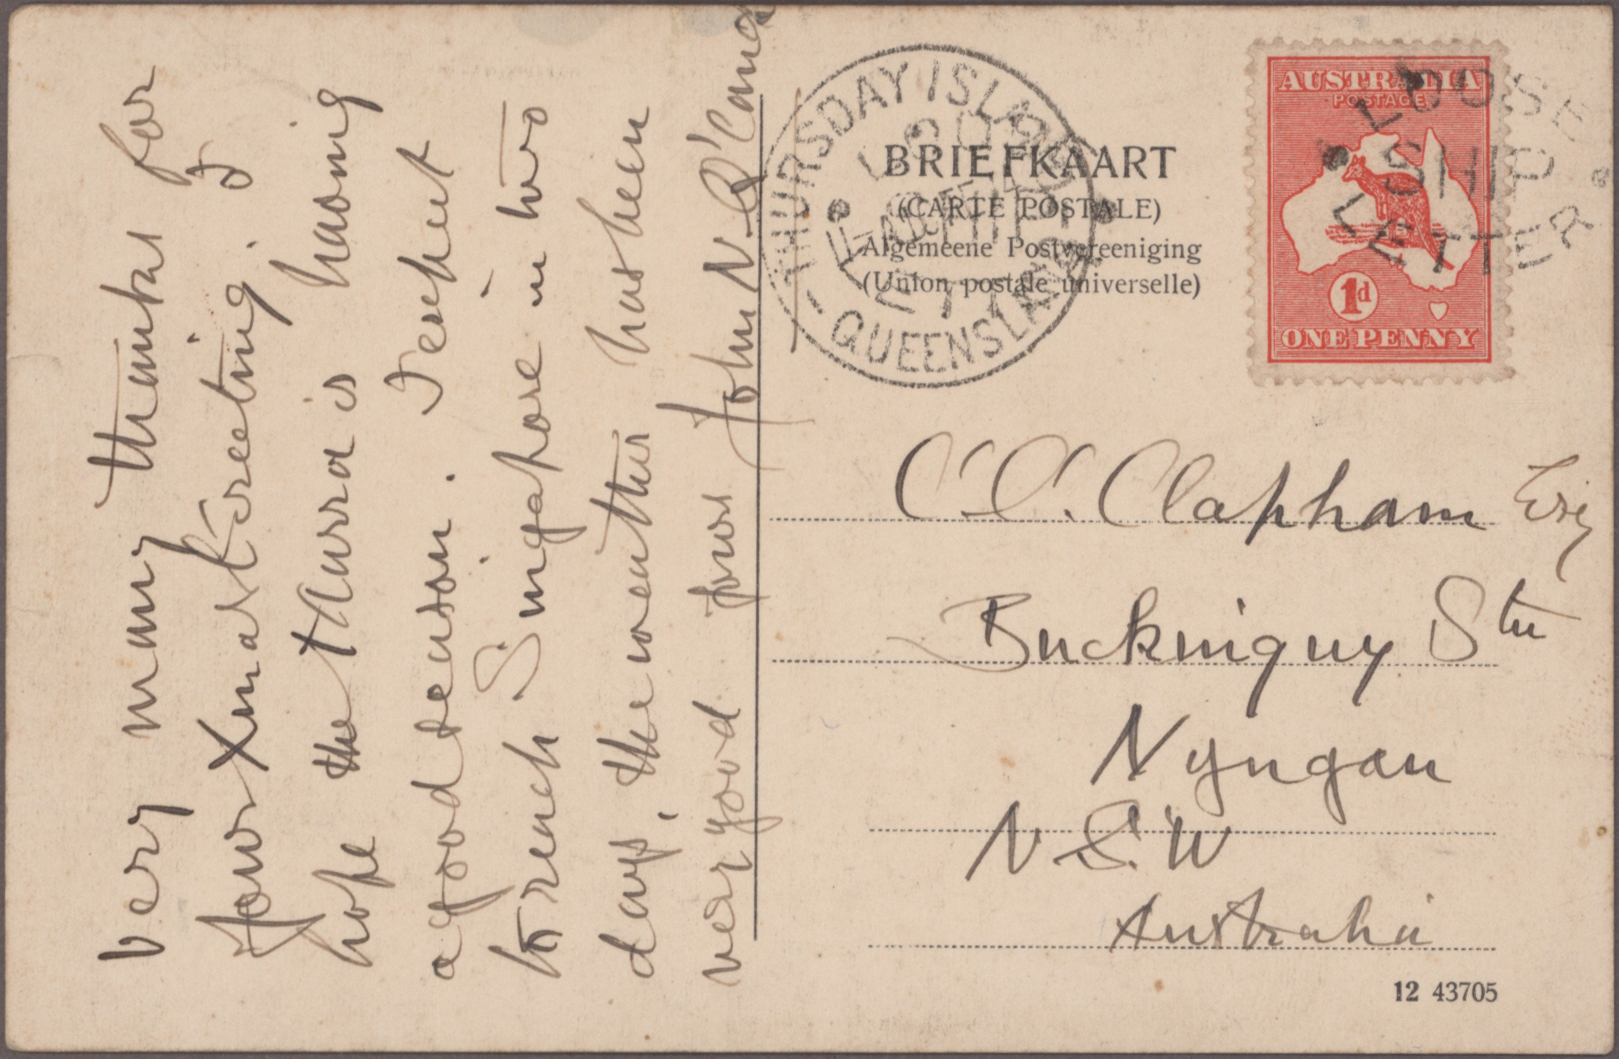 Very many thanks for
your Xmas Greeting.
hope the is having
a good season. I expect
to reach Singapore in two
days, the weather has been
very good yours John N.
THURSDAY ISLAND
QUEENSLAND
BRIEFKAART
(CARTE POSTALE)
Algemeene Postvereeniging
(Union postale universelle)
AUSTRALIA
POSTAGE
1d
ONE PENNY
LOOSE
SHIP
LETTER
C. C. Clapham Esq
Buckinguy Stn
Nyngan
N.S.W
Australia
12 43705